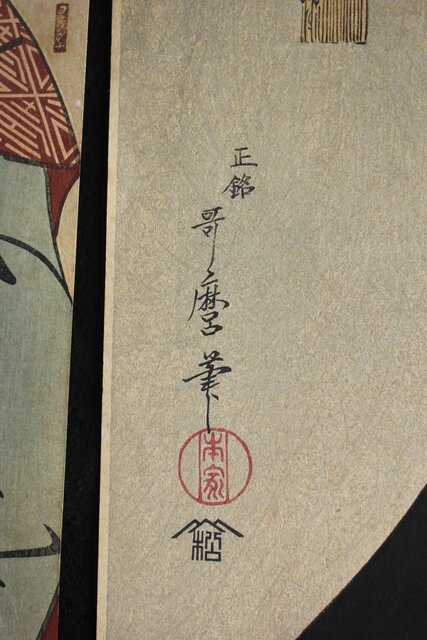 正銘
哥麿筆
本家
松